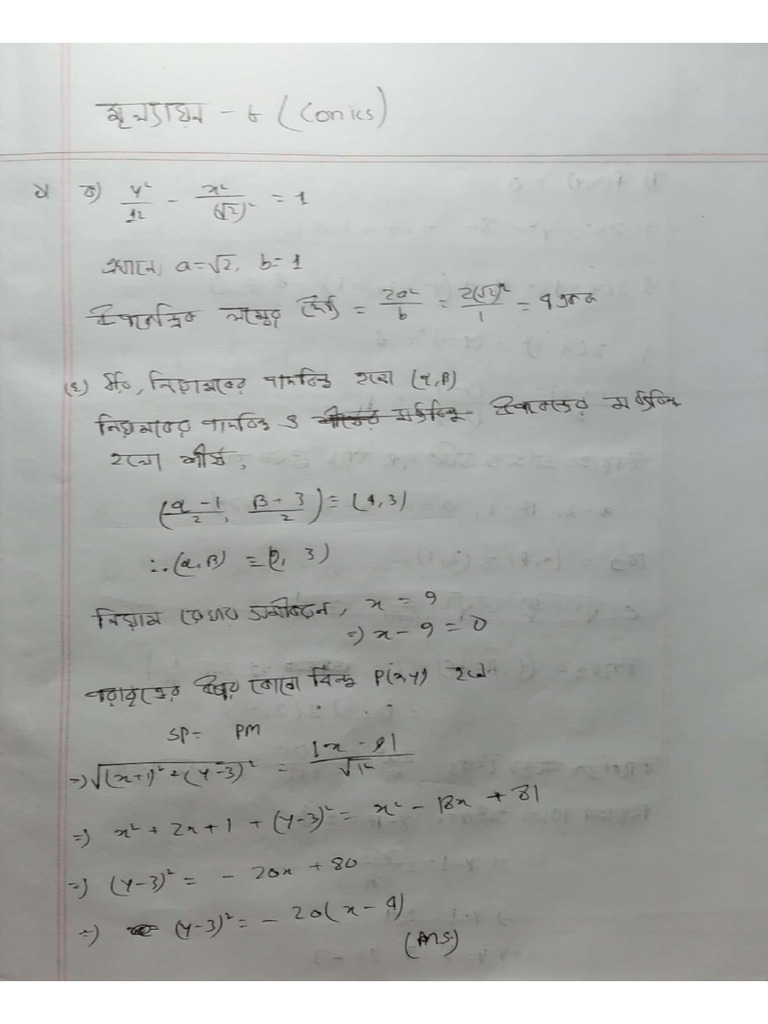 মূল্যায়ন - ৮ (Conics)
১) ক) y²/1² - x²/(√2)² = 1
এখানে, a=√2, b=1
উপকেন্দ্রিক লম্বের দৈর্ঘ্য = 2a²/b = 2(√2)²/1 = 4 একক
(খ) ধরি, নিয়ামকের পাদবিন্দু হলো (α,β)
নিয়ামকের পাদবিন্দু ও উপকেন্দ্রের মধ্যবিন্দু
হলো শীর্ষ,
(α-1/2, β+3/2) = (4,3)
∴(α,β) = (9, 3)
নিয়ামক রেখার সমীকরণ, x = 9
⇒ x - 9 = 0
পরাবৃত্তের উপর কোনো বিন্দু P(x,y) হলে
SP = PM
⇒ √(x+1)²+(y-3)² = |x - 9|/√1²
⇒ x² + 2x + 1 + (y-3)² = x² - 18x + 81
⇒ (y-3)² = - 20x + 80
⇒ (y-3)² = - 20(x - 4)
(Ans.)